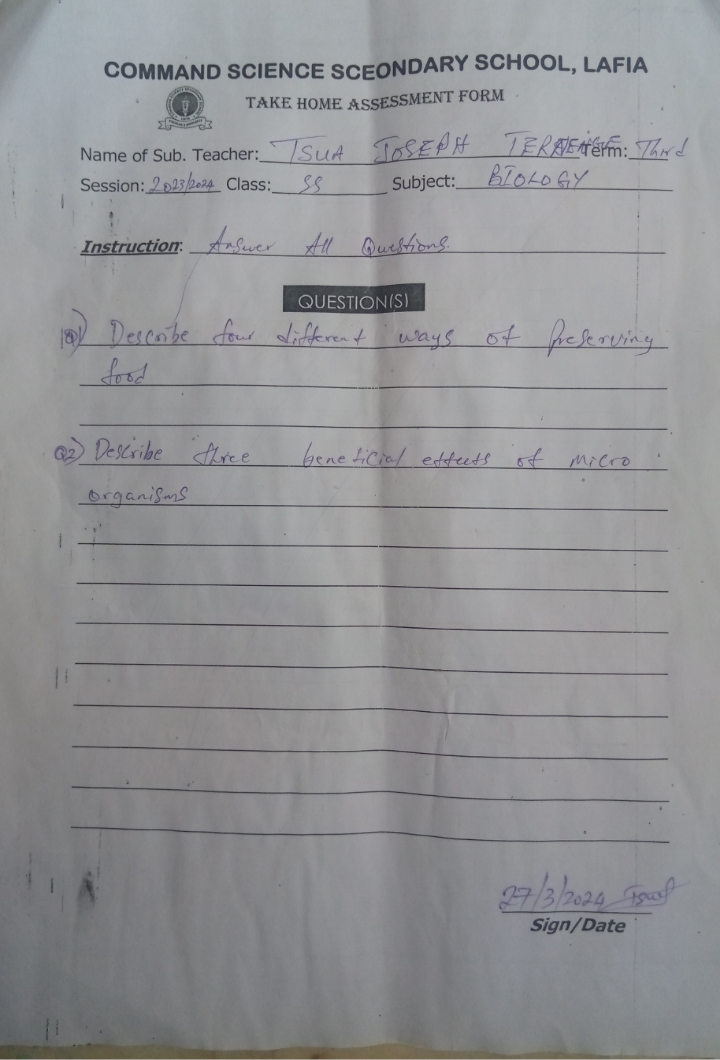 COMMAND SCIENCE SCEONDARY SCHOOL, LAFIA
TAKE HOME ASSESSMENT FORM
Name of Sub. Teacher: TSUA JOSEPH TERHENGE Term: Third
Session: 2023/2024 Class: SS Subject: BIOLOGY
Instruction: Answer All Questions.
QUESTION(S)
Q1) Describe four different ways of preserving
food
Q2) Describe three beneficial effects of micro
organisms
27/3/2024
Sign/Date